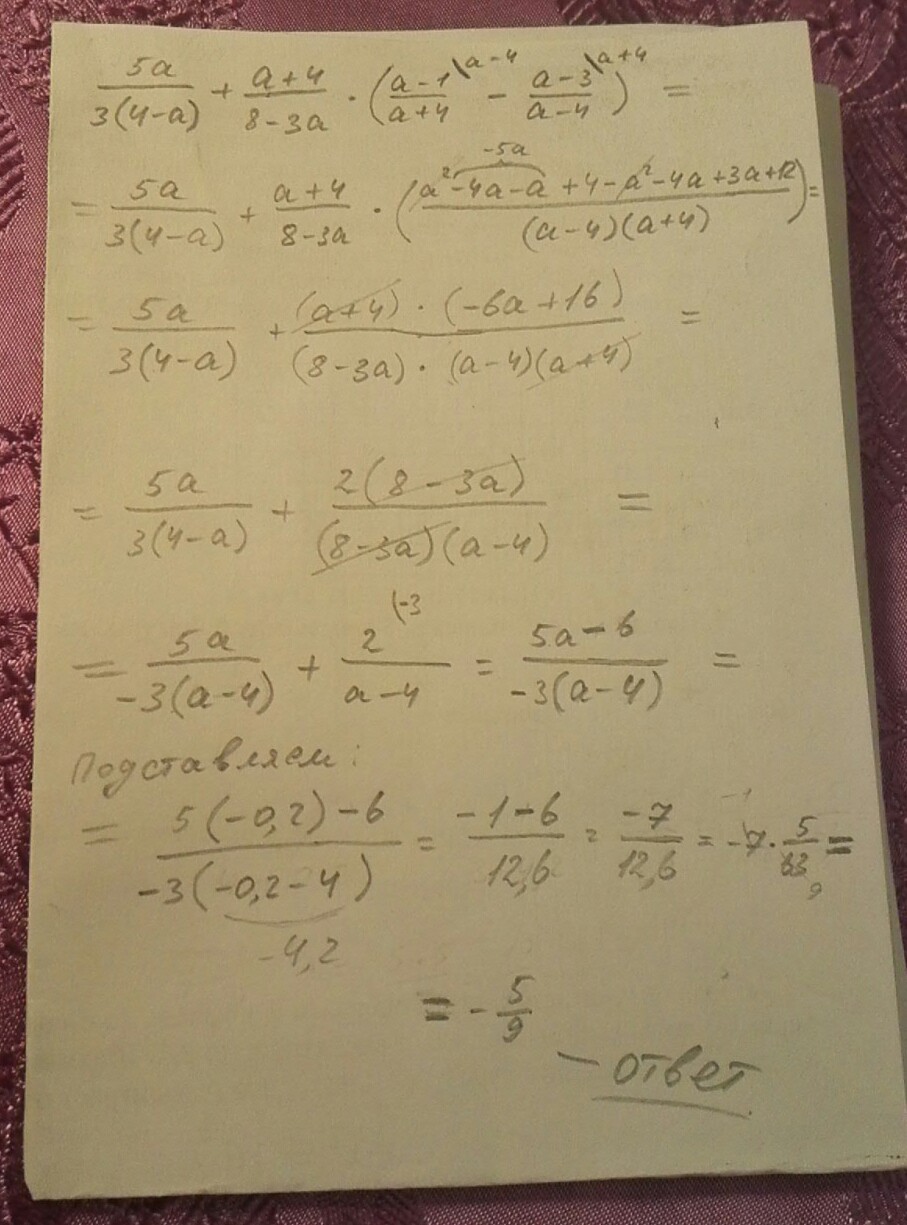 5a/3(4-a) + a+4/8-3a · (a-1/a+4 \a-4 - a-3/a-4 \a+4) =
-5a
= 5a/3(4-a) + a+4/8-3a · (a²-4a-a+4-a²-4a+3a+12/(a-4)(a+4)) =
= 5a/3(4-a) + (a+4)·(-6a+16)/(8-3a)·(a-4)(a+4) =
= 5a/3(4-a) + 2(8-3a)/(8-3a)(a-4) =
(-3
= 5a/-3(a-4) + 2/a-4 = 5a-6/-3(a-4) =
Подставляем:
= 5(-0,2)-6/-3(-0,2-4) = -1-6/12,6 = -7/12,6 = -7·5/63 =
-1
9
-4,2
= -5/9
- ответ